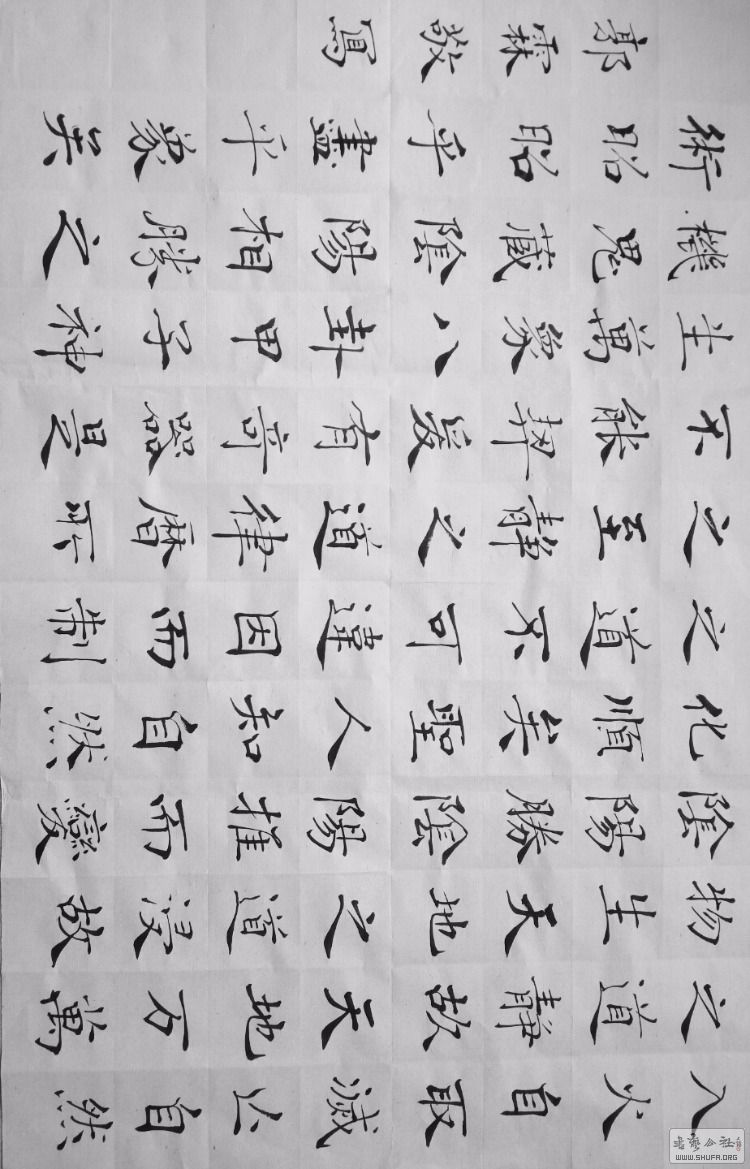 入火自取滅止自然
之道靜故天地万萬
物生天地之道浸故
陰陽勝陰陽推而變
化順矣聖人知自然
之道不可違因而制
之至靜之道律曆所
不能契爰有奇器是
生萬象八卦甲子神
機鬼藏陰陽相勝之
術昭昭乎盡乎象矣
郭霖敬寫
WWW.SHUFA.ORG